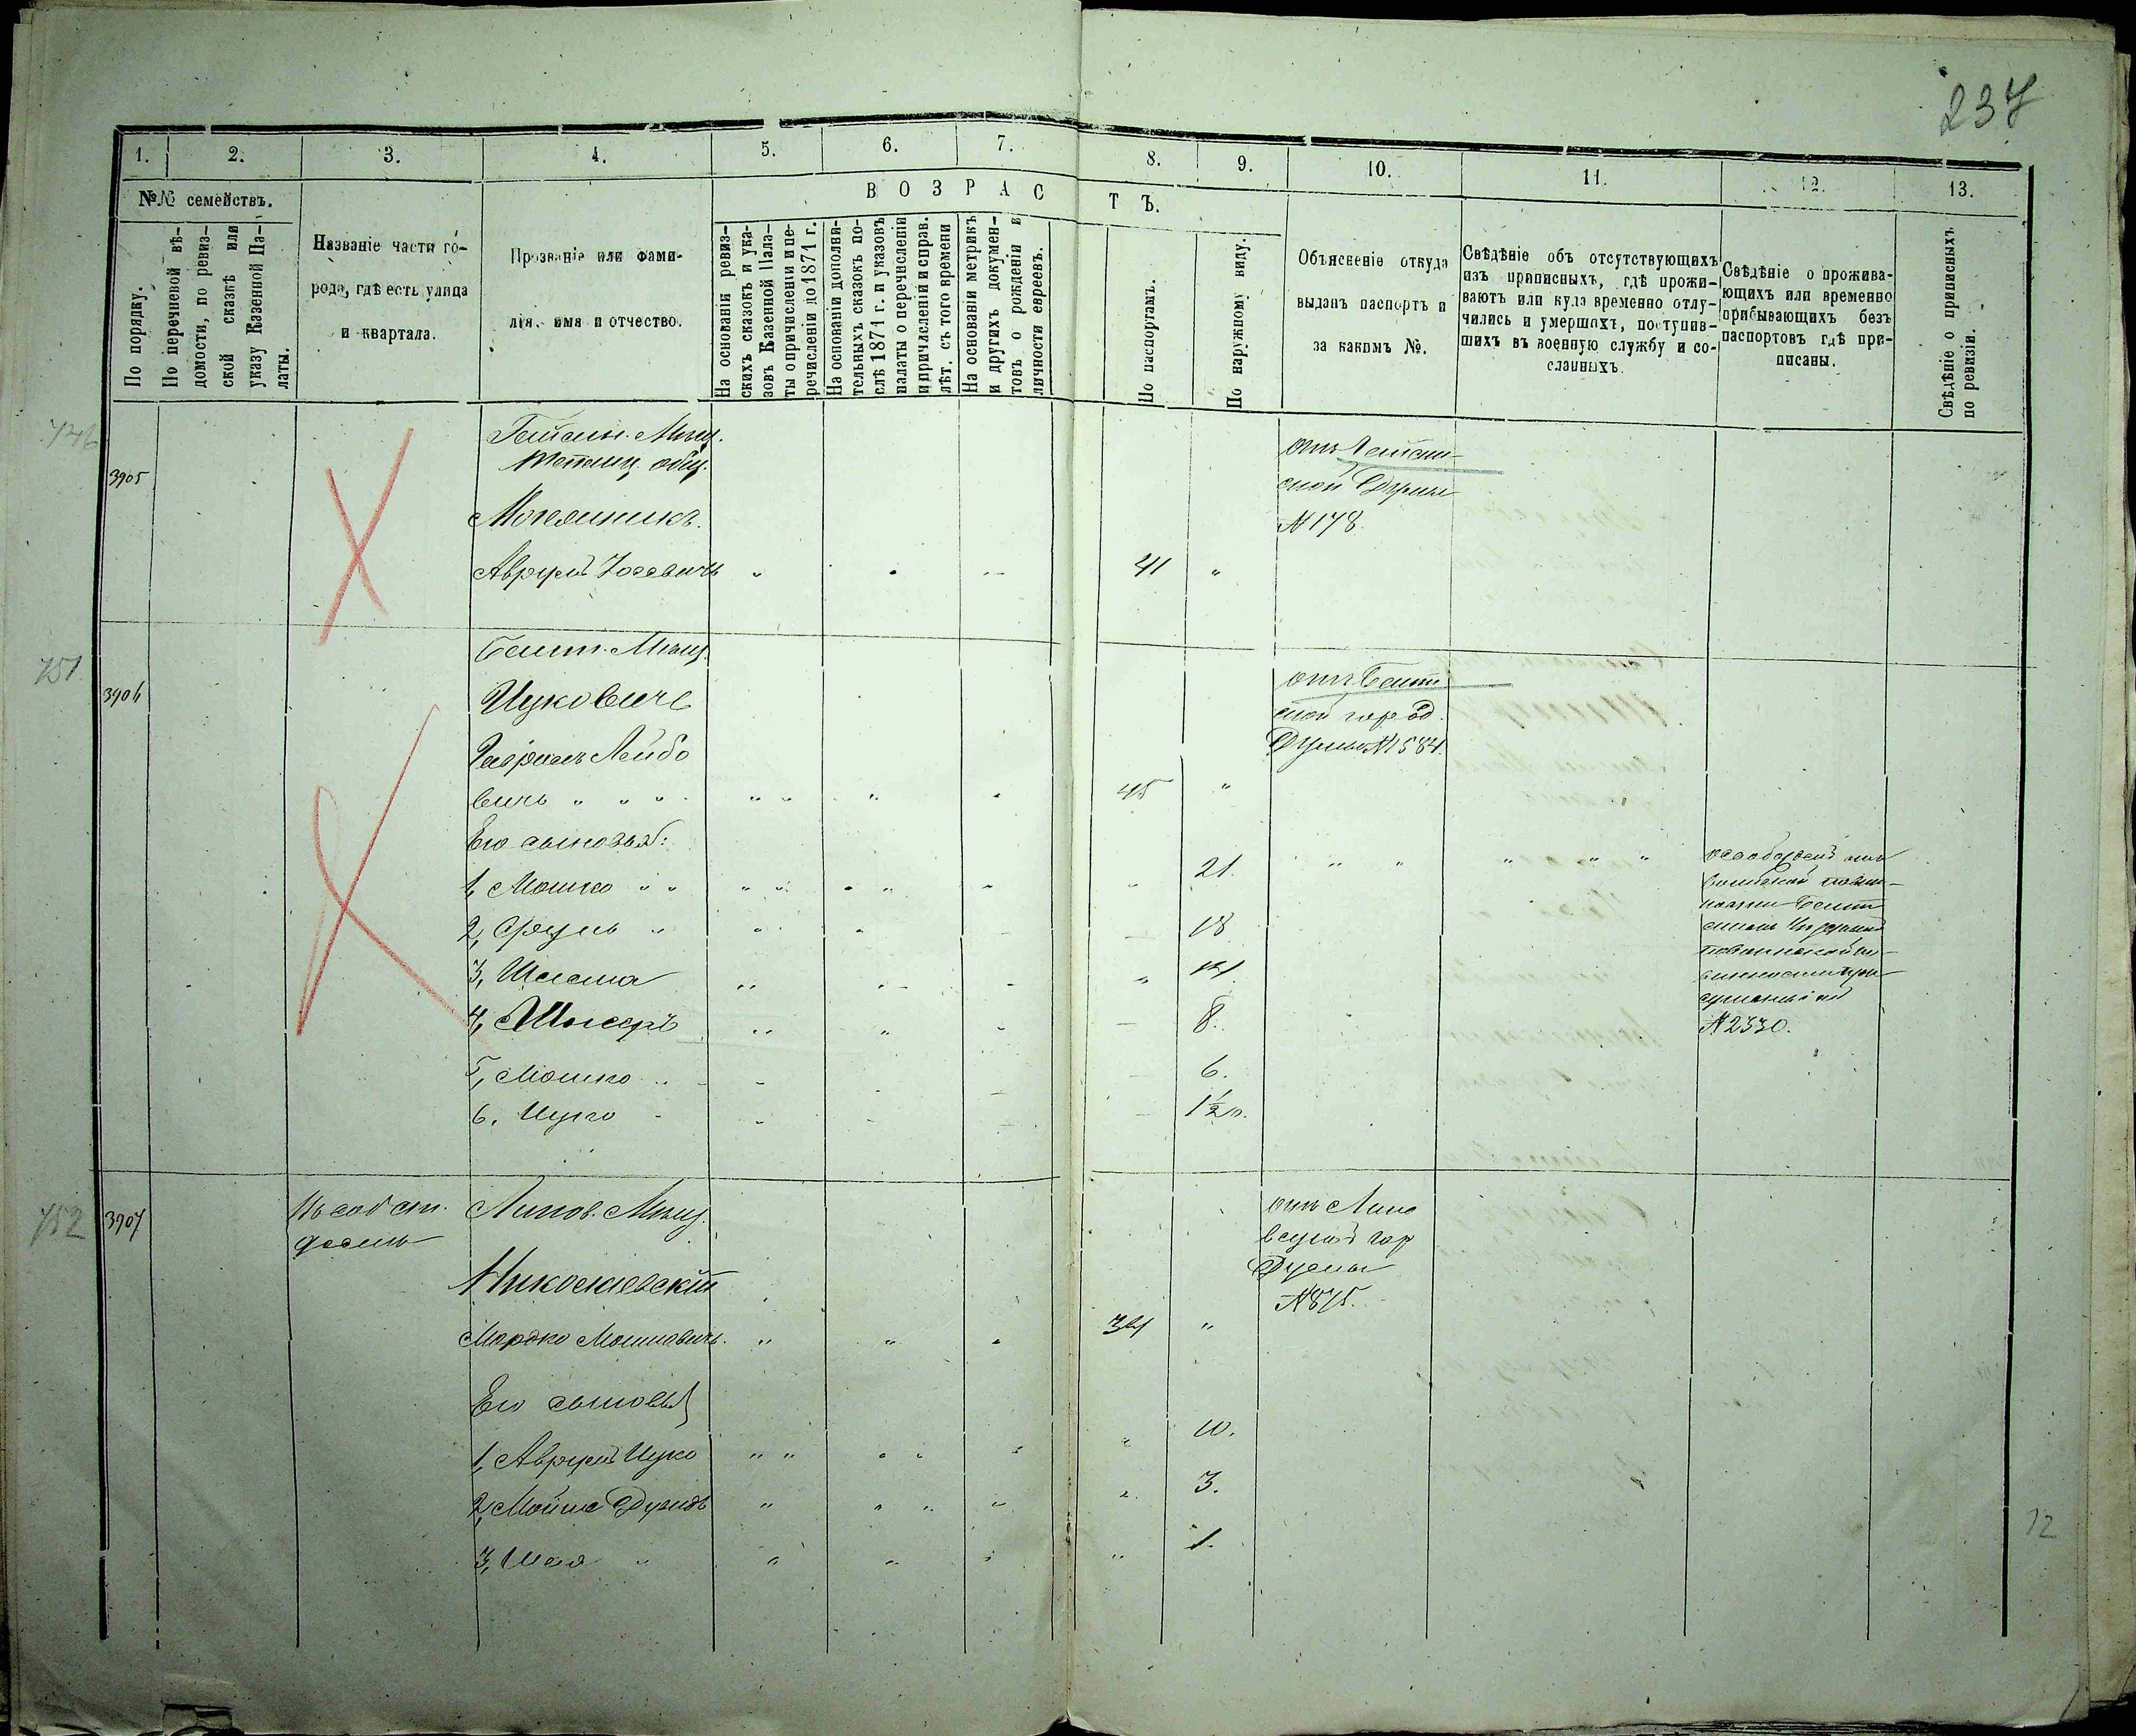 237
1. 2. 3. 4. 5. 6. 7. 8. 9. 10. 11. 12. 13.
№№ семействъ.
По порядку.
По перечневой вѣ-
домости, по ревиз-
ской сказкѣ или
указу Казенной Па-
латы.
Названіе части го-
рода, гдѣ есть улица
и квартала.
Прозваніе или фами-
лія, имя и отчество.
ВОЗРАСТЪ.
На основаніи ревиз-
скихъ сказокъ и ука-
зовъ Казенной Пала-
ты о причисленіи и пе-
речисленіи до 1871 г.
На основаніи дополни-
тельныхъ сказокъ по-
слѣ 1871 г. и указовъ
палаты о перечисленіи
и причисленіи и справ.
лѣт. съ того времени
На основаніи метрикъ
и другихъ докумен-
товъ о рожденіи и
личности евреевъ.
По паспортамъ.
По наружному виду.
Объясненіе откуда
выданъ паспортъ и
за какимъ №.
Свѣдѣніе объ отсутствующихъ
изъ приписныхъ, гдѣ прожи-
ваютъ или куда временно отлу-
чились и умершихъ, поступив-
шихъ въ военную службу и со-
сланныхъ.
Свѣдѣніе о прожива-
ющихъ или временно
прибывающихъ безъ
паспортовъ гдѣ при-
писаны.
Свѣдѣніе о приписныхъ
по ревизіи.
746
3905
Мѣщ.
общ.
Аврумъ Іосевичъ
41
Думы
№ 178
751
3906
Мѣщ.
Ицковичъ
Лейбо
вичъ
45
ской город.
Думы № 1584.
Его сыновья:
1, Мошко
21.
2, Сруль
18
3, Шлема
4, Шмеръ
8.
5, Мошко
6.
6, Ицко
1½ г.
№ 2330.
752
3907
Въ собст.
домѣ
Липов. Мѣщ.
Николаевскій
Мордко Мошковичъ
34
отъ Липо
вецкой гор
Думы
№ 875.
Его сыновья
1, Аврумъ Ицко
10.
2, Мойше Дувидъ
3.
3, Шая
1.
12